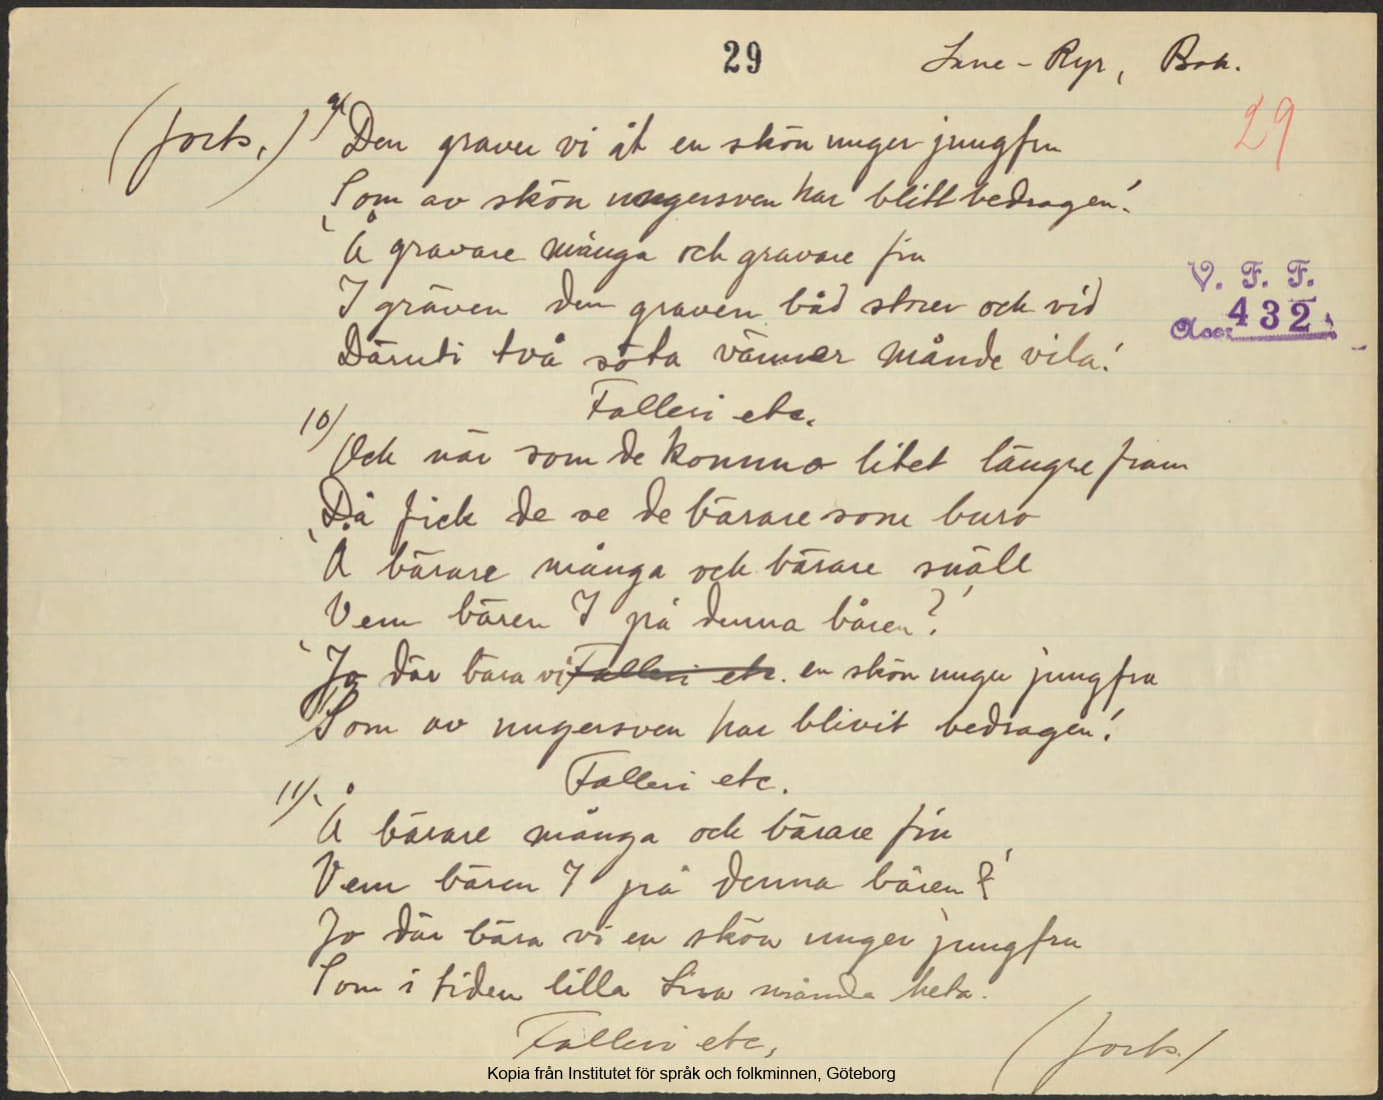 29
Lane-Ryr, Boh.
29
(forts.) 9/ Den graver vi åt en skön unger jungfru
Som av skön ungersven har blitt bedragen!
Å gravare många och gravare fin
I gräven den graven båd storer och vid
Däruti två söta vänner månde vila!
Falleri etc.
10/
Och när som de kommo litet längre fram
Då fick de se de bärare som buro
Å bärare många och bärare snäll
Vem bären I på denna båren?
Jo där bära vi Falleri etc. en skön unger jungfru
Som av ungersven har blivit bedragen!
Falleri etc.
11/
Å bärare många och bärare fin
Vem bären I på denna båren?
Jo där bära vi en skön unger jungfru
Som i tiden lilla Lisa månde heta.
Falleri etc,
(forts.)
V. F. F.
Acc: 432
Kopia från Institutet för språk och folkminnen, Göteborg